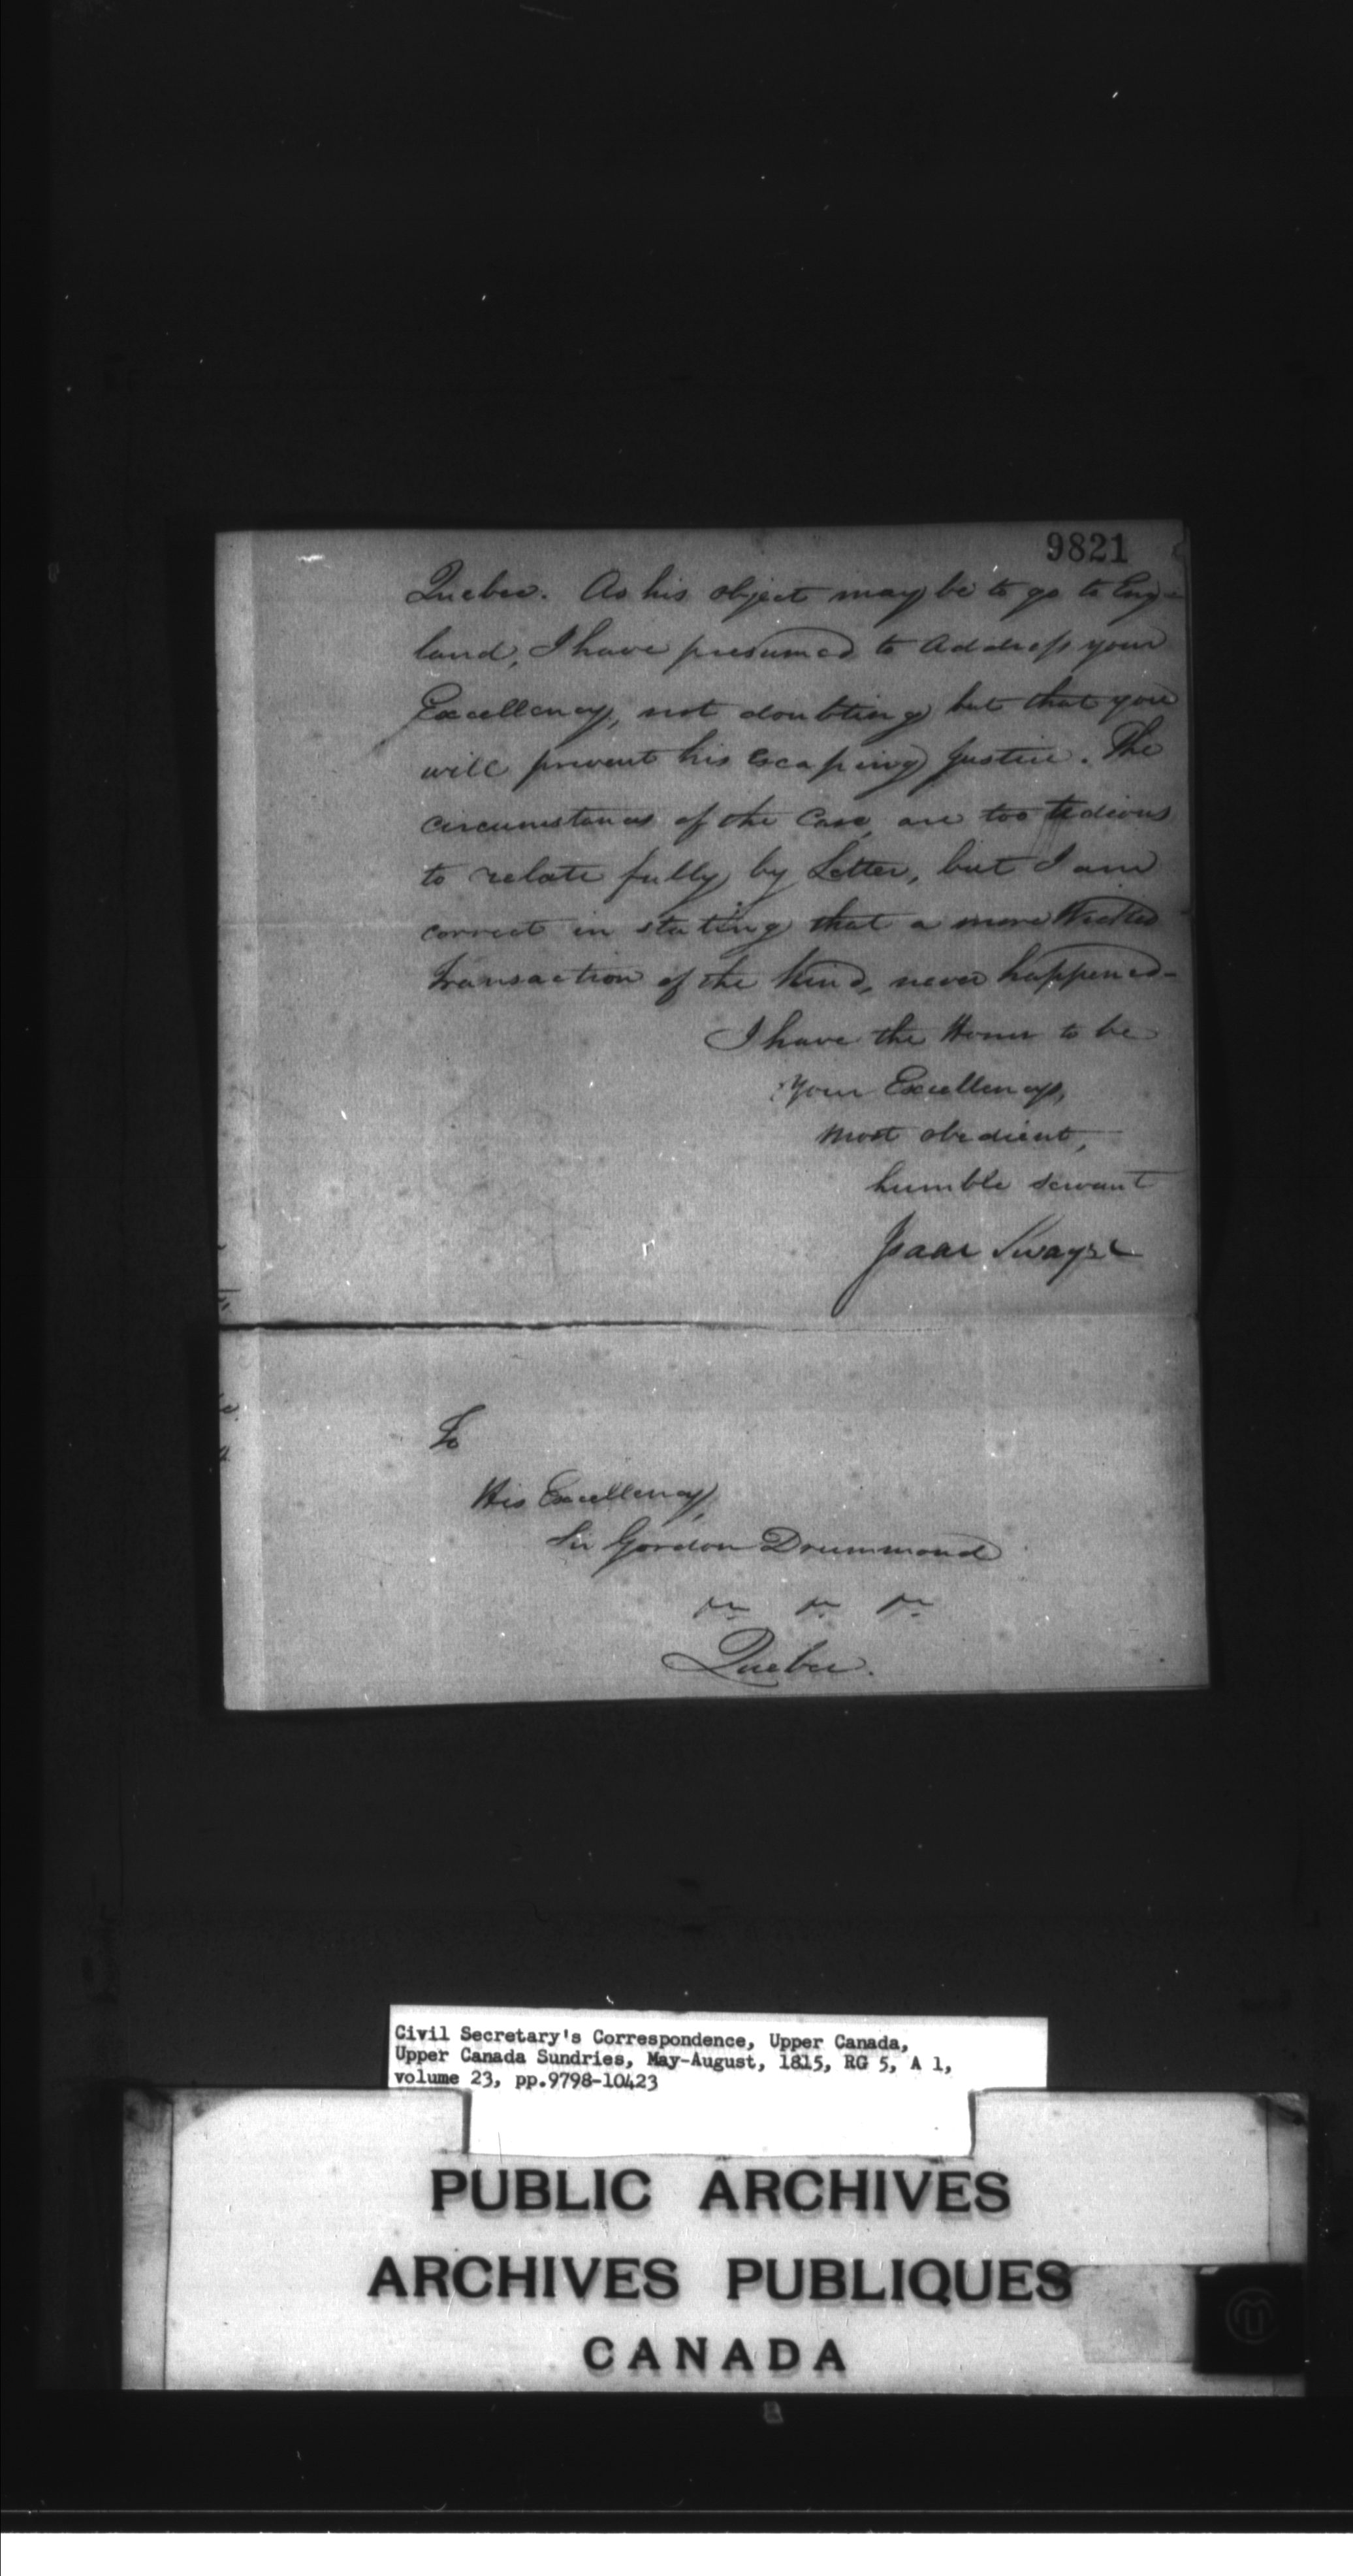 9821
Quebec. As his object may be to go to Eng-
land, I have presumed to address your
Excellency, not doubting but that you
will prevent his escaping Justice. The
circumstances of the Case, are too tedious
to relate fully by Letter, but I am
correct in stating that a more Wicked
transaction of the kind, never happened-
I have the Honor to be
Your Excellencys,
most obedient,
humble servant
Isaac Swayze
To
His Excellency,
Sir Gordon Drummond
Quebec.
Civil Secretary's Correspondence, Upper Canada,
Upper Canada Sundries, May-August, 1815, RG 5, A 1,
volume 23, pp.9798-10423
PUBLIC ARCHIVES
ARCHIVES PUBLIQUES
CANADA